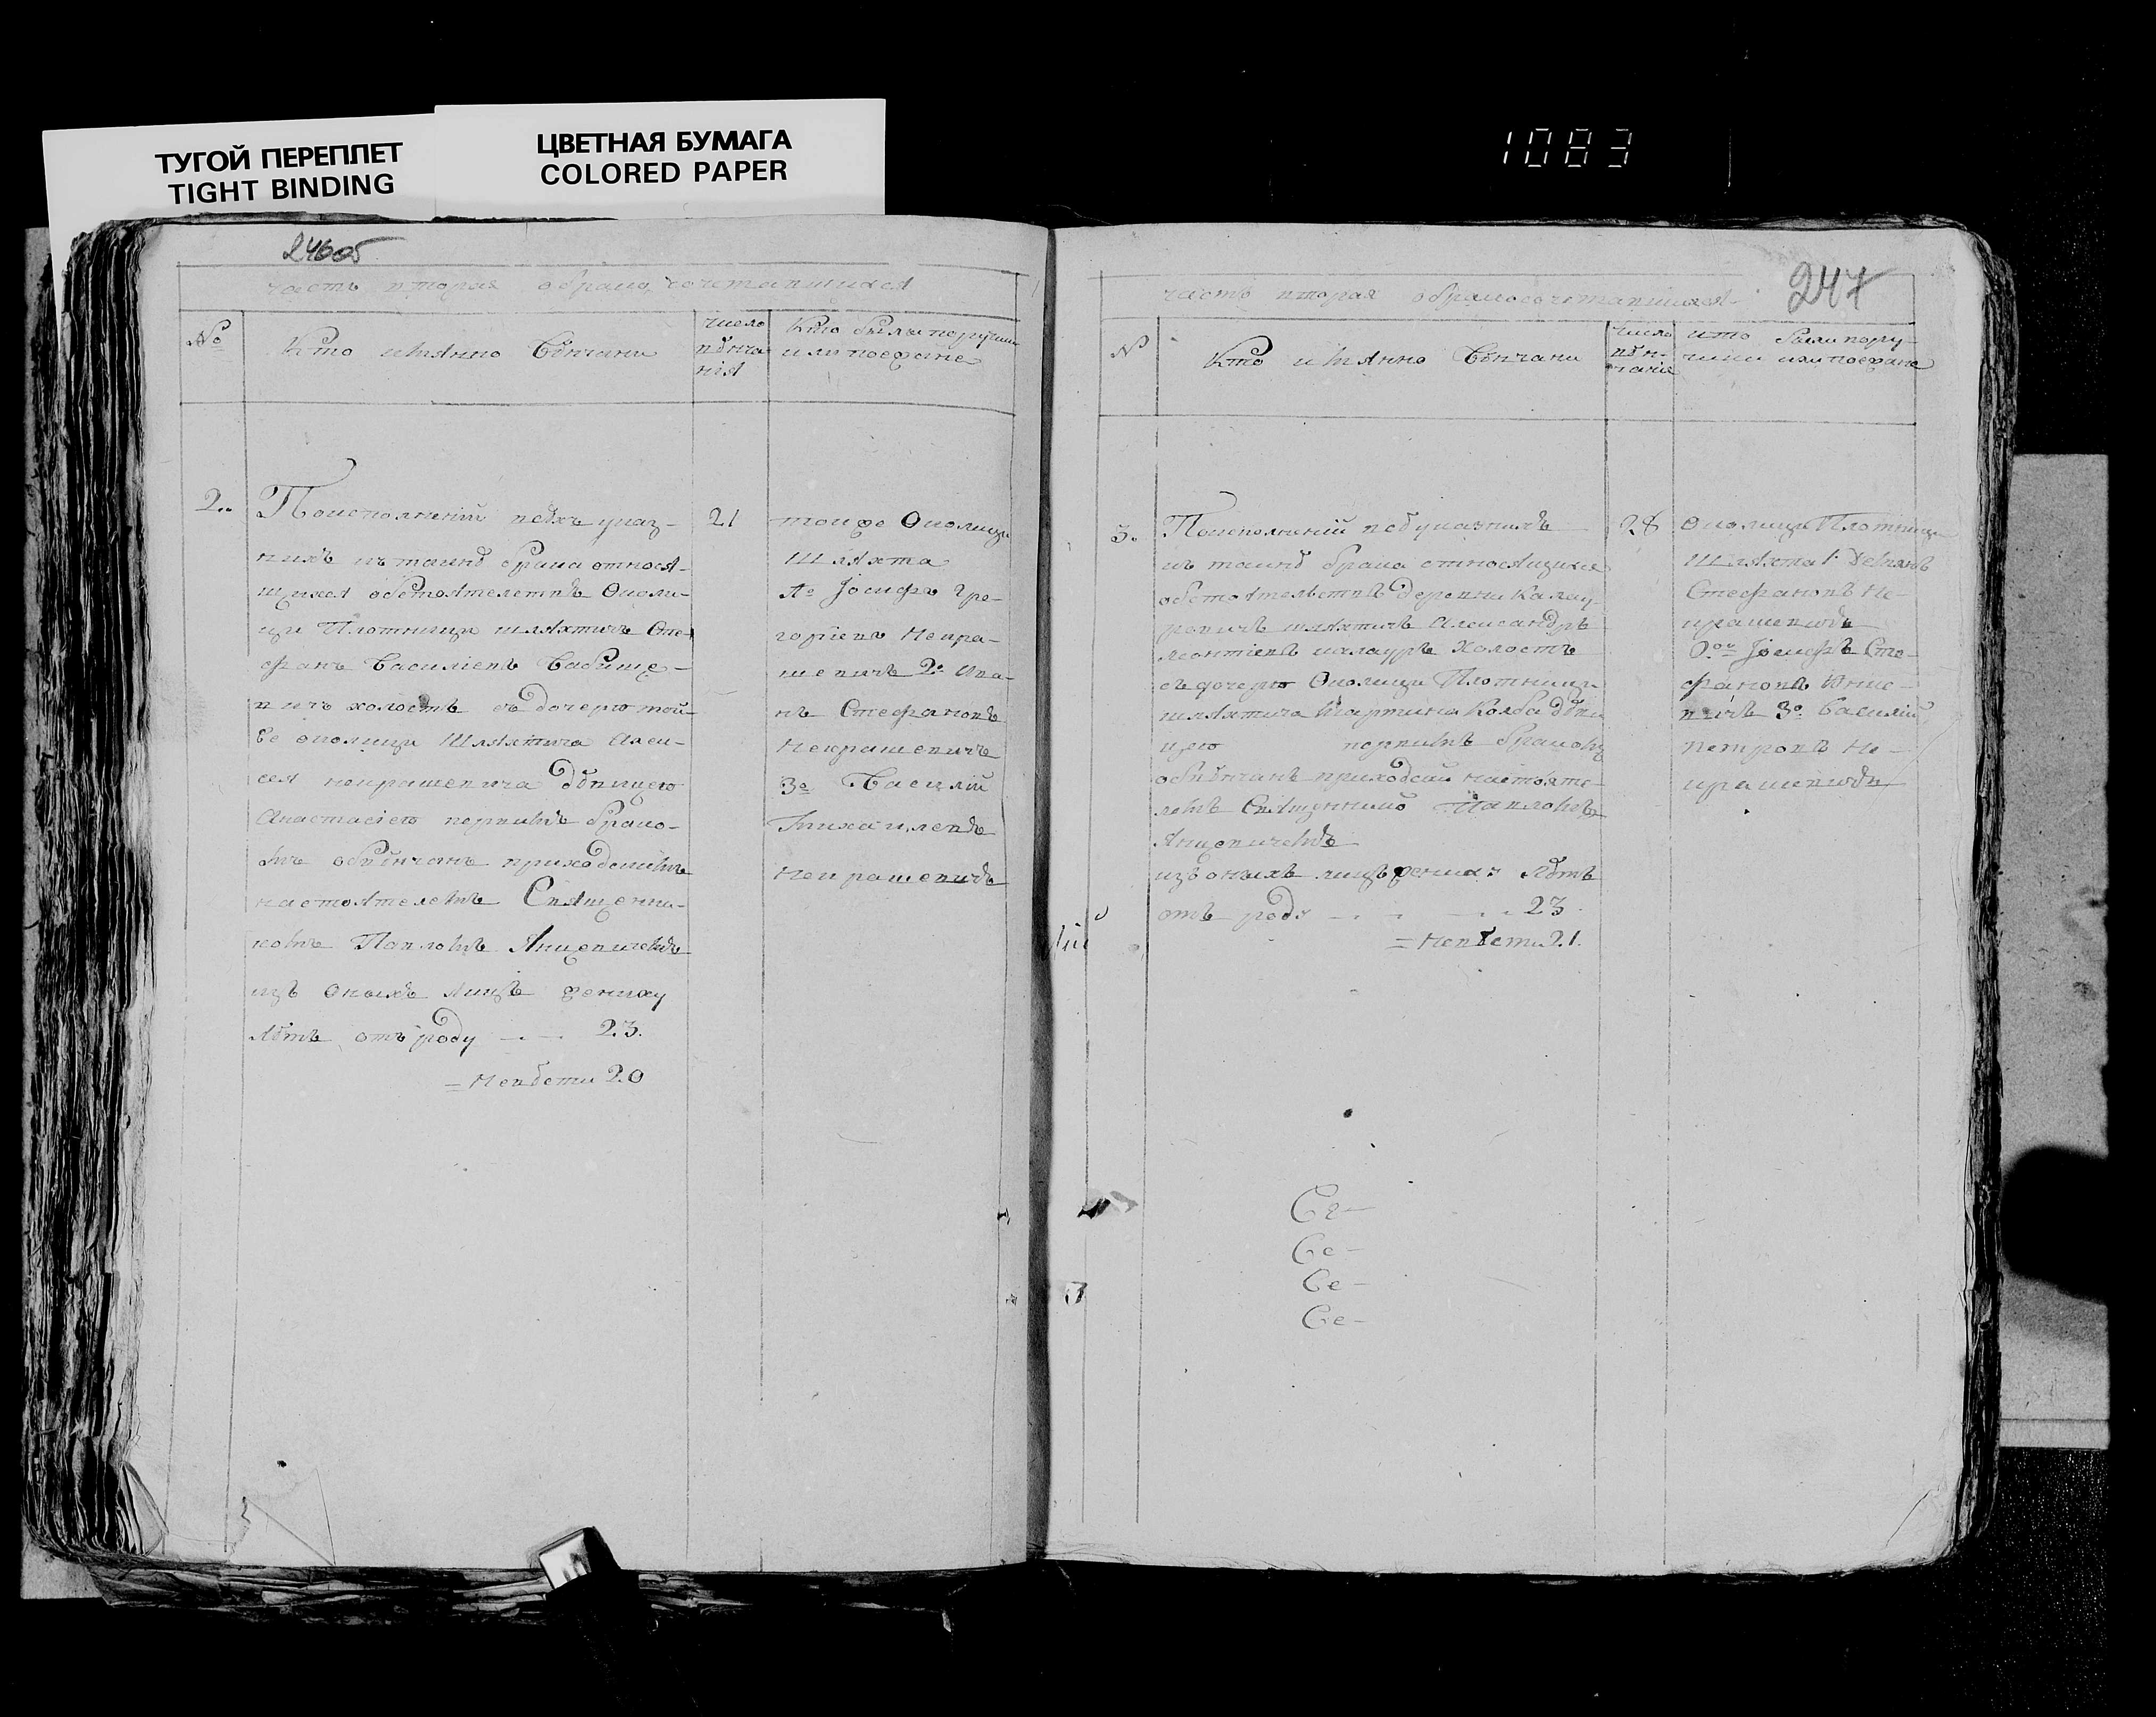 ТУГОЙ ПЕРЕПЛЕТ
TIGHT BINDING
ЦВЕТНАЯ БУМАГА
COLORED PAPER
1083
246об
часть вторая о бракосочетавшихся
№
Кто имянно Венчани
число
вѣнча
нія
Кто были поручики
или поезжане
2..
По исполненій всѣхъ указ-
нихъ къ таинѣ брака относя-
щихся обстоятелствъ Околи-
ци Плотници шляхтичъ Сте
фанъ Василіевъ Бабище-
вичъ холостъ зъ дочерю той-
же околици Шляхтича Алек-
сея Некрашевича дѣвицею
Анастасіею первимъ брако-
мъ обвѣнчанъ приходскимъ
настоятелемъ Священни-
комъ Павломъ Янцевичемъ
изъ Оныхъ лицъ жениху
лѣтъ отъ роду 23.
= Невѣсти 20
21
той же Околици
Шляхта
1о Іосифъ Гре-
горіевъ Некра-
шевичъ 2о Ива-
нъ Стефановъ
Некрашевичъ
3о Василій
Михайловъ
Некрашевичъ
247
часть вторая о бракосочетавшихся
№
Кто имянно Венчани
число
вѣн-
чанія
кто были пору-
чики или поезжане
3.
По исполненій всѣхъ указнихъ
къ таинѣ брака относящихся
обстоятельствъ Деревни Калау-
ровичъ шляхтичъ Александръ
Леонтіевъ Калауръ Холостъ
съ дочерю Околици Плотници
шляхтича Мартина Колба дѣви
цею первимъ бракомъ
обвѣнчанъ приходскимъ настояте-
лемъ Священникомъ Павломъ
Янцевичемъ
изъ оныхъ лицъ жениху лѣтъ
отъ роду 23
= Невѣсти 21.
28
Околици Плотници
Шляхта 1. Демянъ
Стефановъ Не-
крашевичъ
2. Іосифъ Сте-
фановъ
вичъ 3о Василій
Петровъ Не-
крашевичъ
Се-
Се-
Се-
Се-